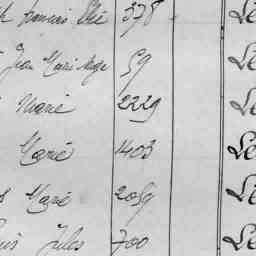 François 378 Le
Jean Marie Ange 59 Le
Marie 2229 Le
Marie 1403 Le
Marie 2059 Le
Jules 700 Le